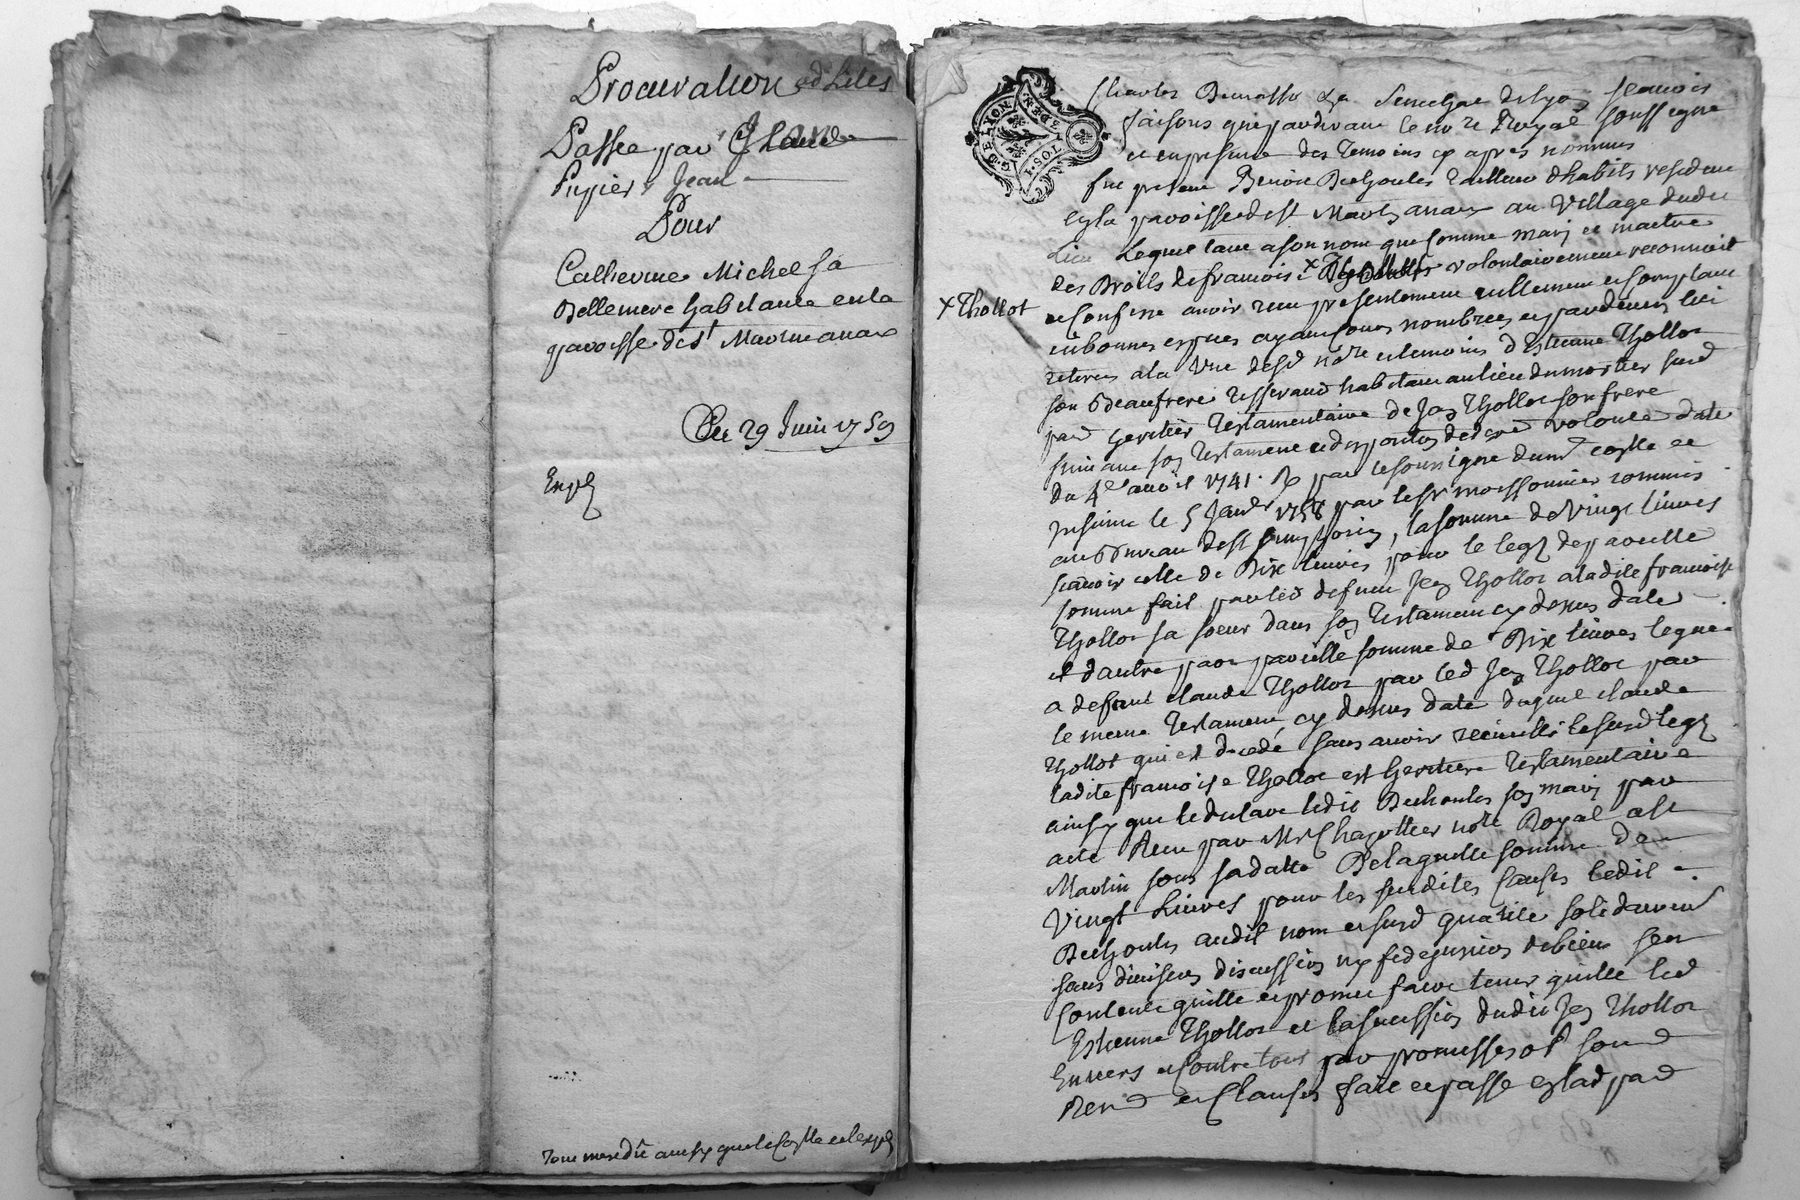 Procuration ad Lites
Passée par Claude
Pupier Jean
Pour
Catherine Michel sa
Bellemere habitante en la
paroisse de St Maurice
Ce 29 Juin 1759
Expé
Tout me du ainsy que le
GEN. DE LYON
1. SOL
scavoir
faisons que pardevant le nore Royal soussigné
et en presence des temoins cy apres nommés
fut present Benoit Bechoules tailleur dhabits resident
en la paroisse de st au village dudit
lieu Lequel tant a son nom que comme mary et maitre
des Droits de francoise x volontairement reconnoit
x Thollot
et confesse avoir recu presentement reellement et comptant
en bonnes especes ayant cours nombrées et pardevers lui
retirées a la vue desd nore et temoins d'Estienne Thollot
son Beaufrere tisserand habitant au lieu du mortier susd
parr heritier Testamentaire de Jean Thollot son frere
suivant son testament et disposition de volonté datté
du 4e avril 1741. R par le soussigné
le 5 Janr 1758 par le sr moissonnier commis
au Bureau de st simphorien, la somme de Vingt livres
scavoir celle de Dix livres pour le legs de pareille
somme fait par led defunt Jean Thollot a ladite francoise
Thollot sa soeur dans son Testament cy dessus datté
et dautre part pareille somme de Dix livres leguée
a defunt claude Thollot par led Jean Thollot par
le meme Testament cy dessus datté duquel claude
Thollot qui est decedé sans avoir recueilli le susd legs
ladite francoise Thollot est heritiere Testamentaire
ainsy que le declare ledit Bechoules son mary par
acte Recu par Mr Chazottier nore Royal a st
Martin sous sa datte De laquelle somme de
Vingt Livres pour les susdites causes ledit
Bechoules audit nom et susd qualité solidairement
sans division discussion ny fidejussion de bien sen
contente quitte et promet faire tenir quitte led
Estienne Thollot et la succession dudit Jean Thollot
Envers et contre tous par promesses obl soum
Renon et Clauses fait et passé en lad par